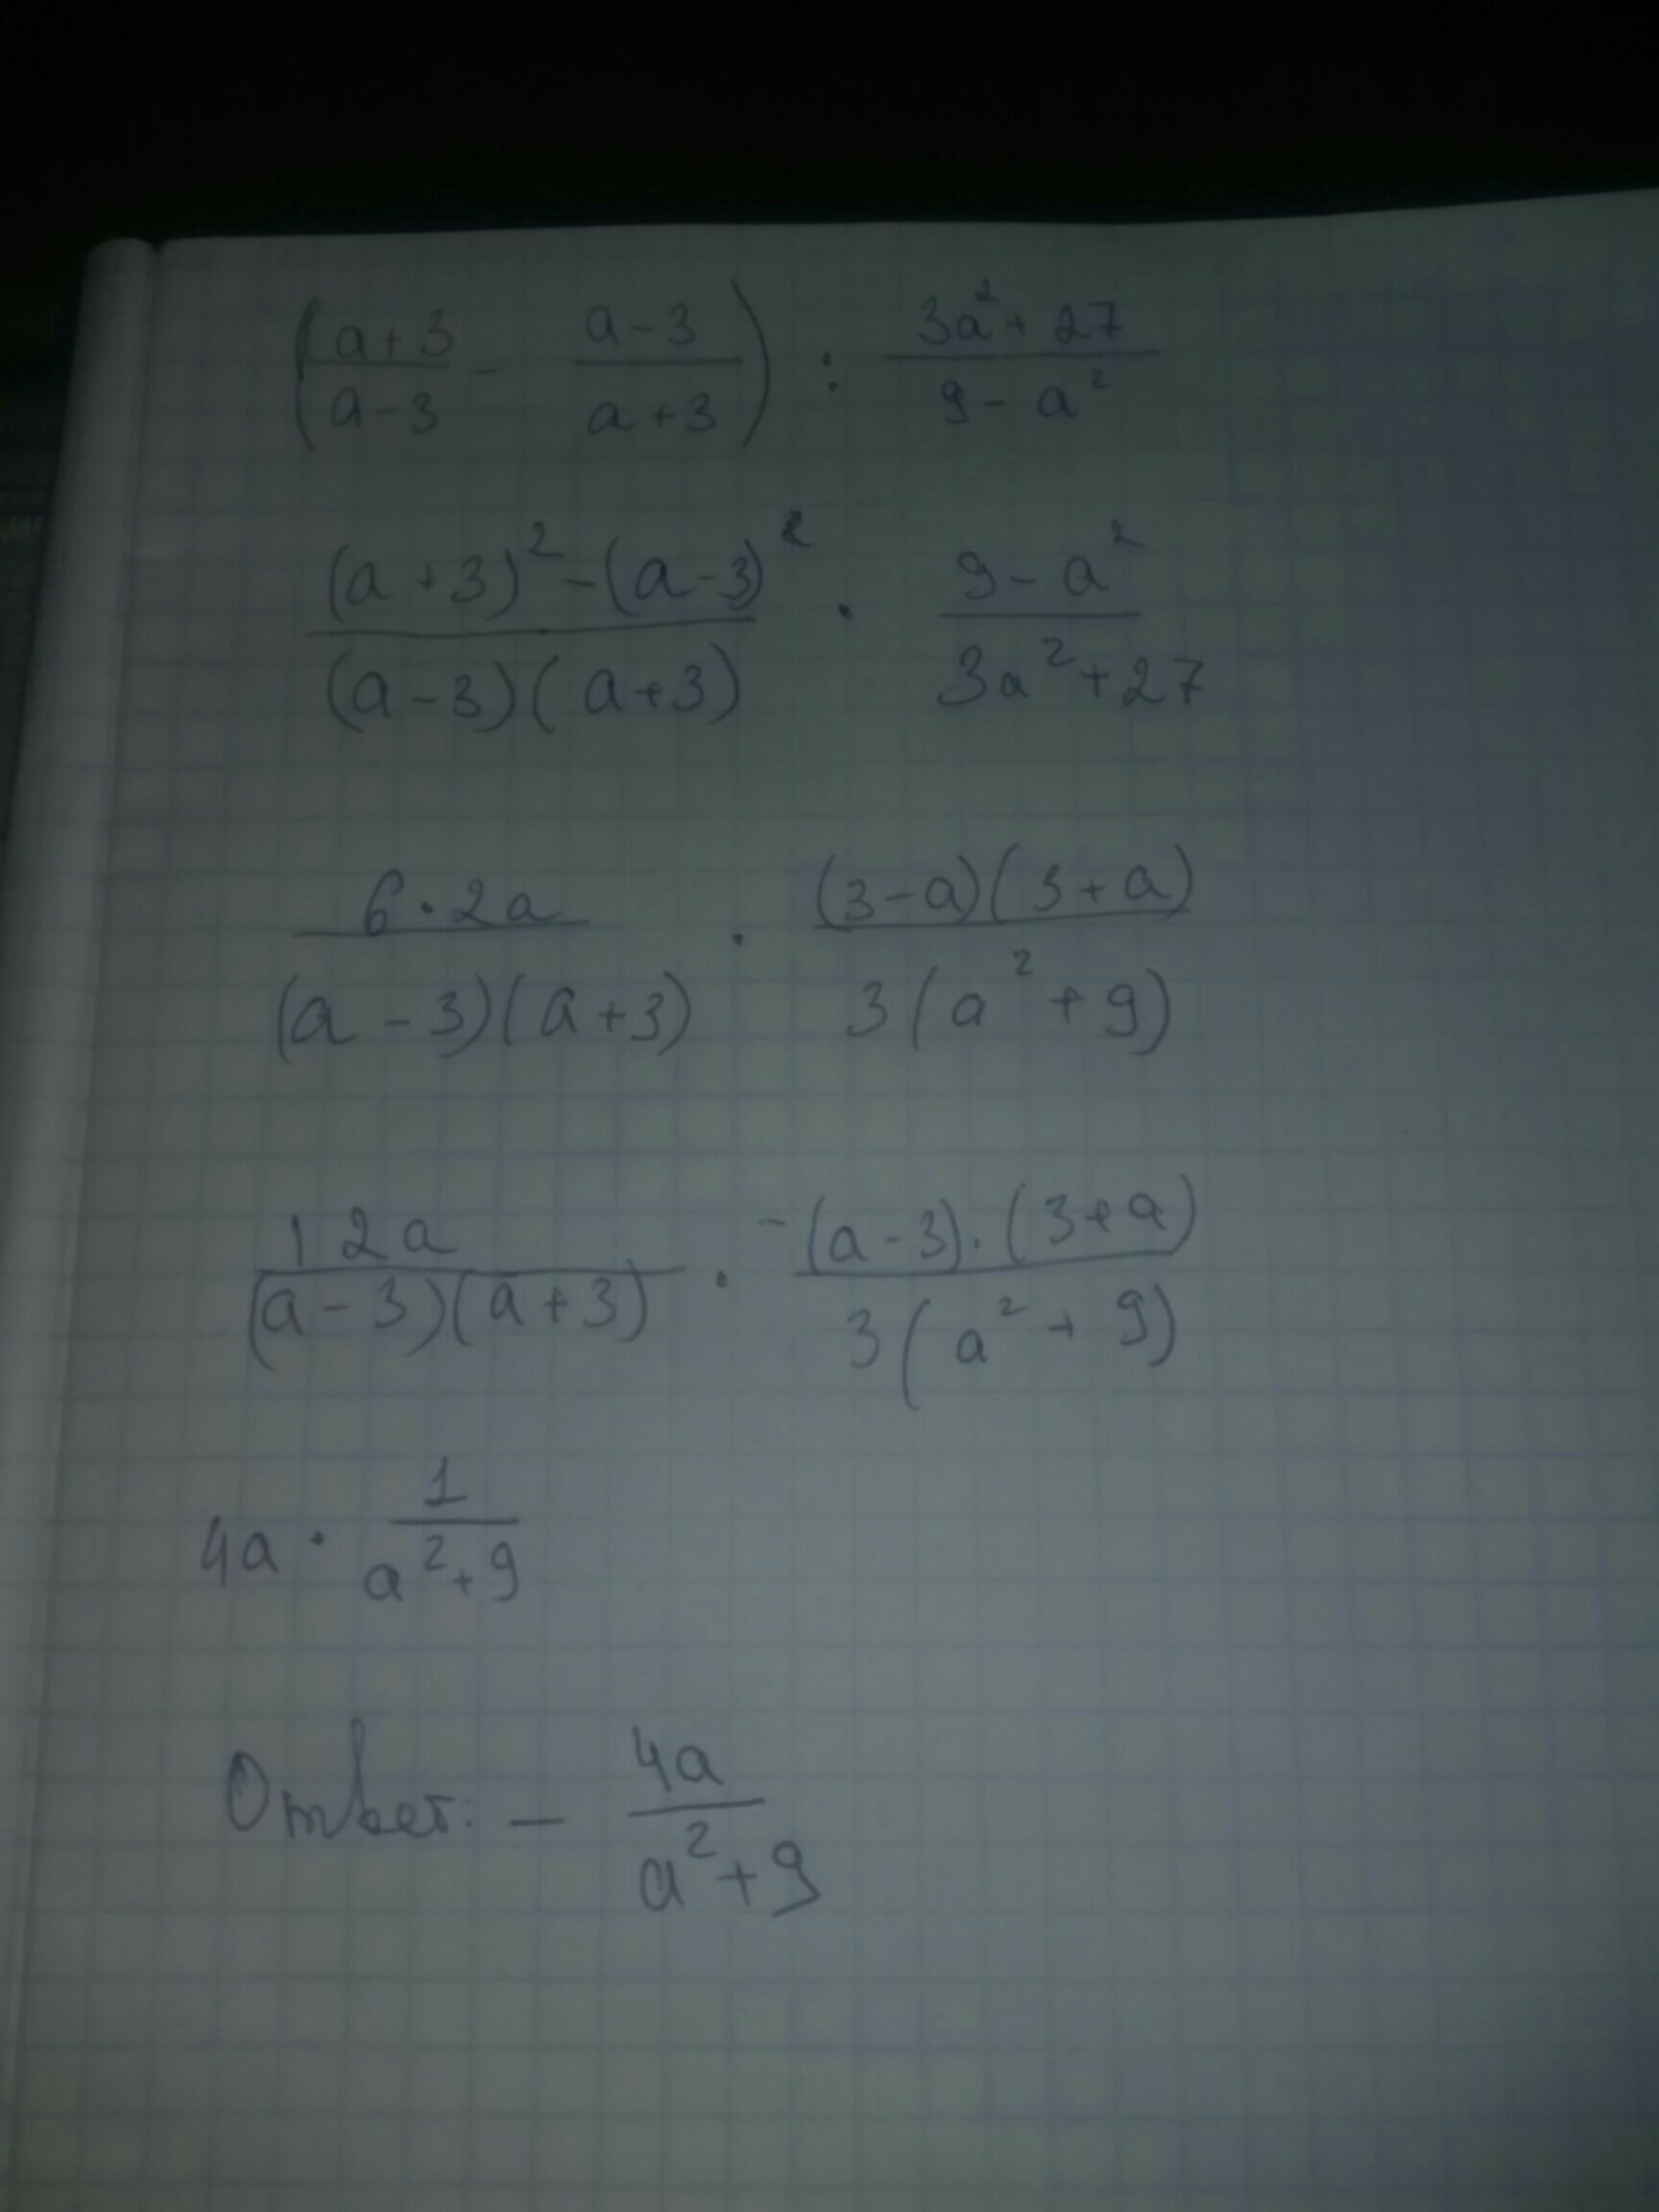 (a+3/a-3 - a-3/a+3) : 3a²+27/9-a²
(a+3)²-(a-3)²/(a-3)(a+3) · 9-a²/3a²+27
6·2a/(a-3)(a+3) · (3-a)(3+a)/3(a²+9)
12a/(a-3)(a+3) · -(a-3)·(3+a)/3(a²+9)
4a · 1/a²+9
Ответ: - 4a/a²+9